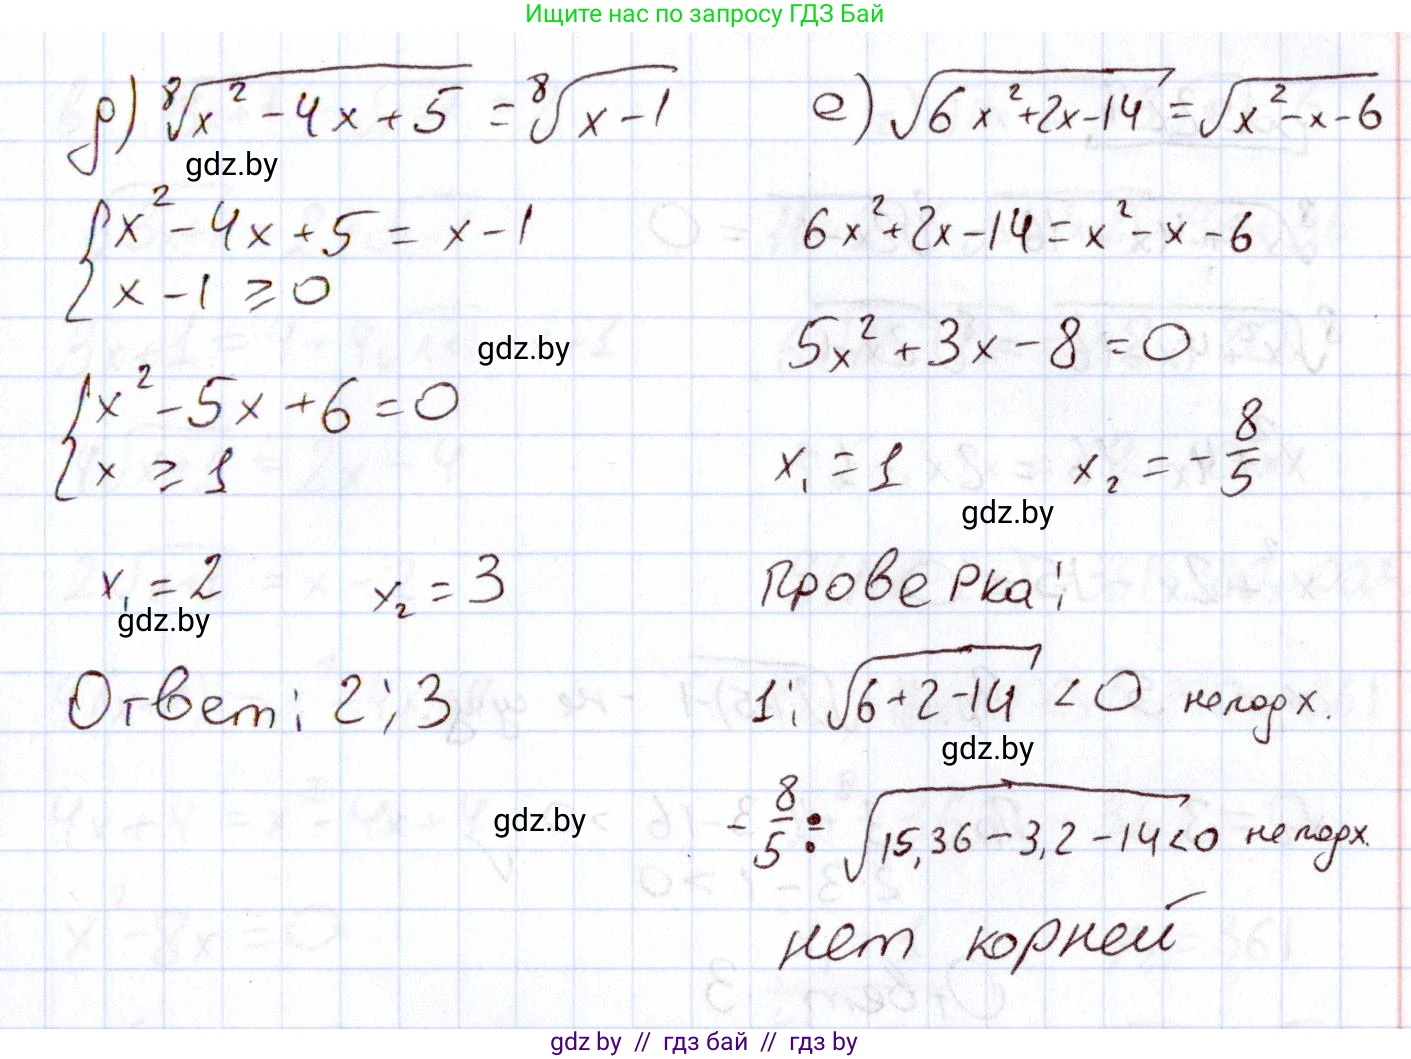 Ищите нас по запросу ГДЗ Бай
д) ⁸√(x² - 4x + 5) = ⁸√(x - 1)
gdz.by
{ x² - 4x + 5 = x - 1
{ x - 1 ≥ 0
gdz.by
{ x² - 5x + 6 = 0
{ x ≥ 1
x₁ = 2   x₂ = 3
gdz.by
Ответ: 2; 3
gdz.by
е) √(6x² + 2x - 14) = √(x² - x - 6)
6x² + 2x - 14 = x² - x - 6
5x² + 3x - 8 = 0
x₁ = 1   x₂ = - 8/5
gdz.by
Проверка:
1: √(6 + 2 - 14) < 0 не подх.
gdz.by
- 8/5 : √(15,36 - 3,2 - 14 < 0) не подх.
нет корней
gdz.by // гдз бай // гдз by